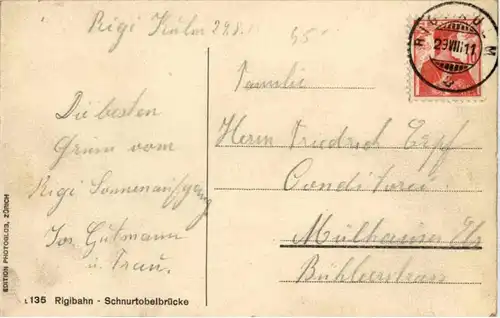 Rigi Kulm 29.8.
Die besten
Grüsse vom
Rigi Sonnenaufgang
Jos. Gutmann
u. Frau.
Familie
Herrn Friedrich
Conditorei
Mülhausen Els
RIGI-KULM
29.VIII.11
10
EDITION PHOTOGLOB, ZÜRICH
135 Rigibahn - Schnurtobelbrücke